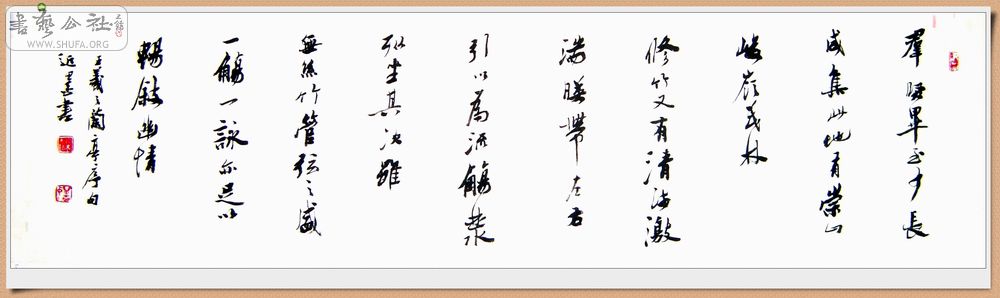 羣賢畢至少長
咸集此地有崇山
峻嶺茂林
修竹又有清流激
湍暎帶左右
引以為流觴曲水
列坐其次雖
無絲竹管弦之盛
一觴一詠亦足以
暢敘幽情
王羲之蘭亭序句
書
書藝公社
WWW.SHUFA.ORG